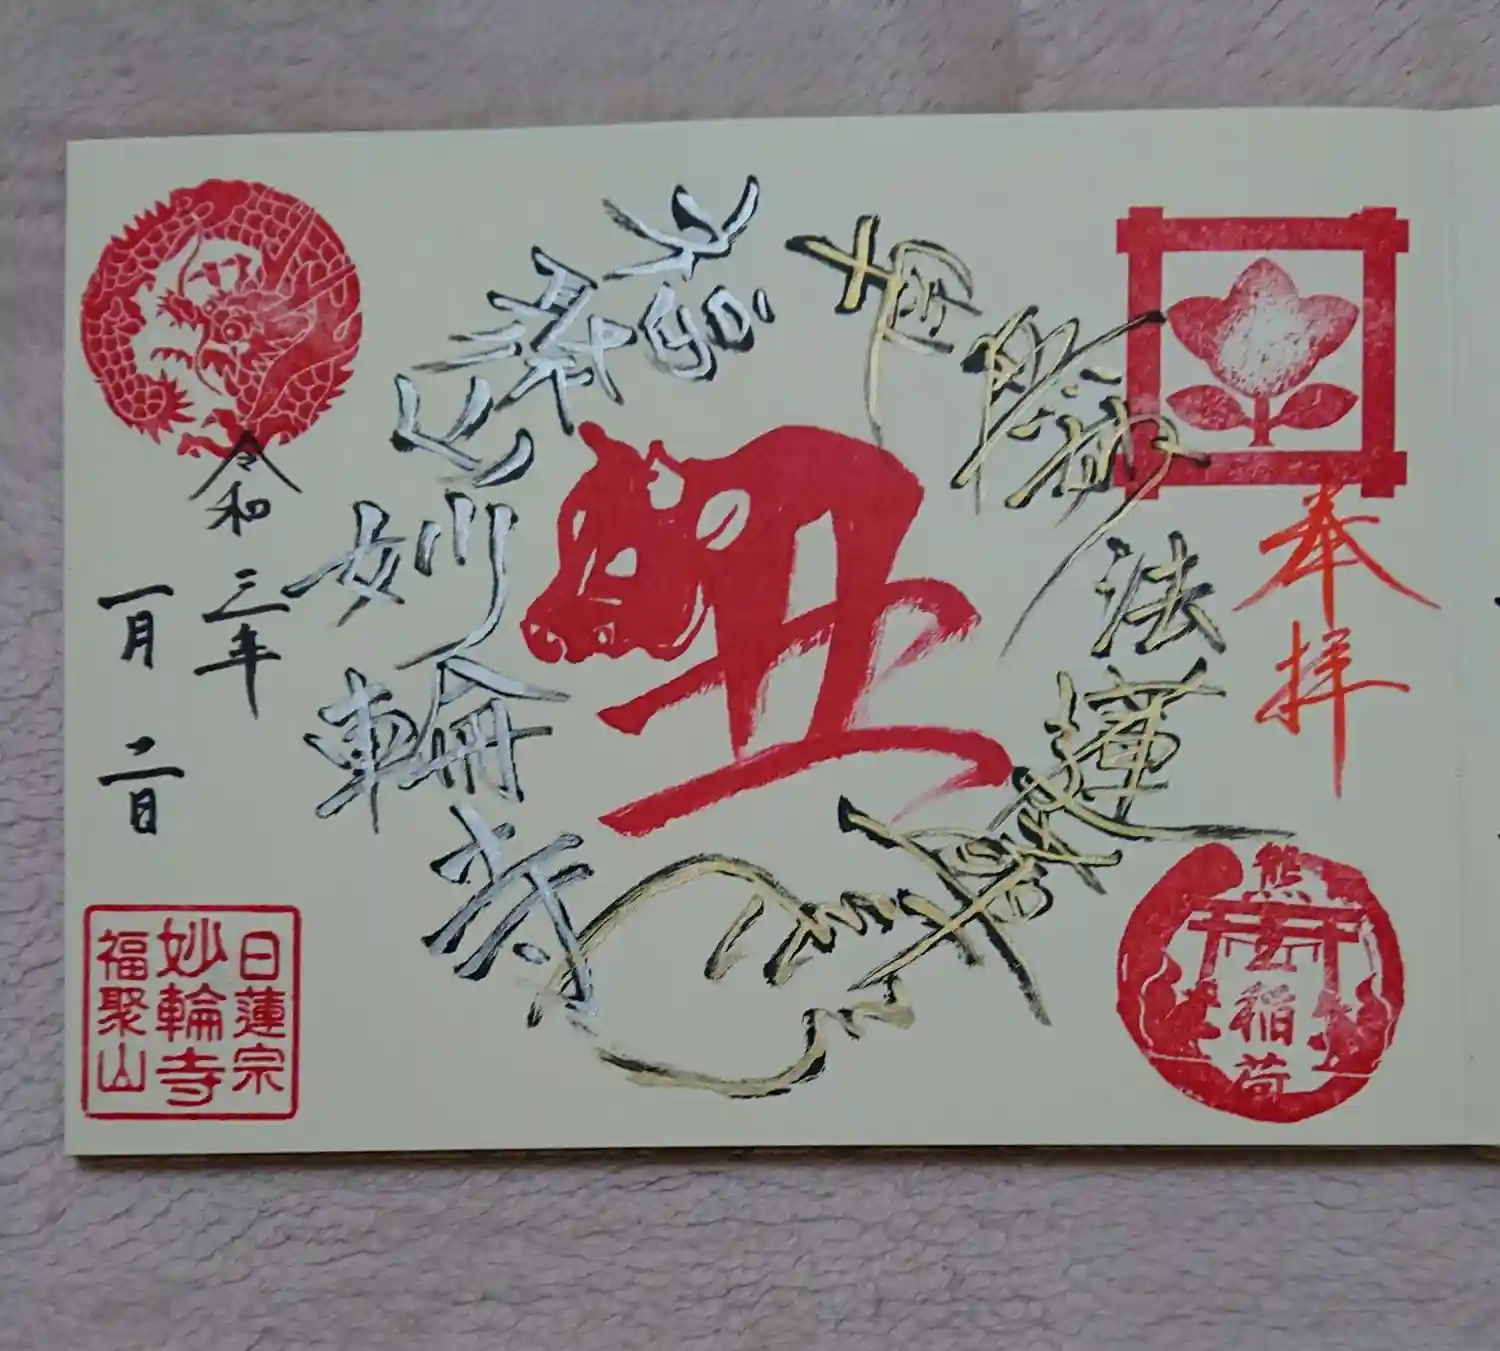 奉拝
熊
稲荷
南無妙法蓮華経
丑
妙輪寺
令和三年
一月二日
日蓮宗
妙輪寺
福聚山